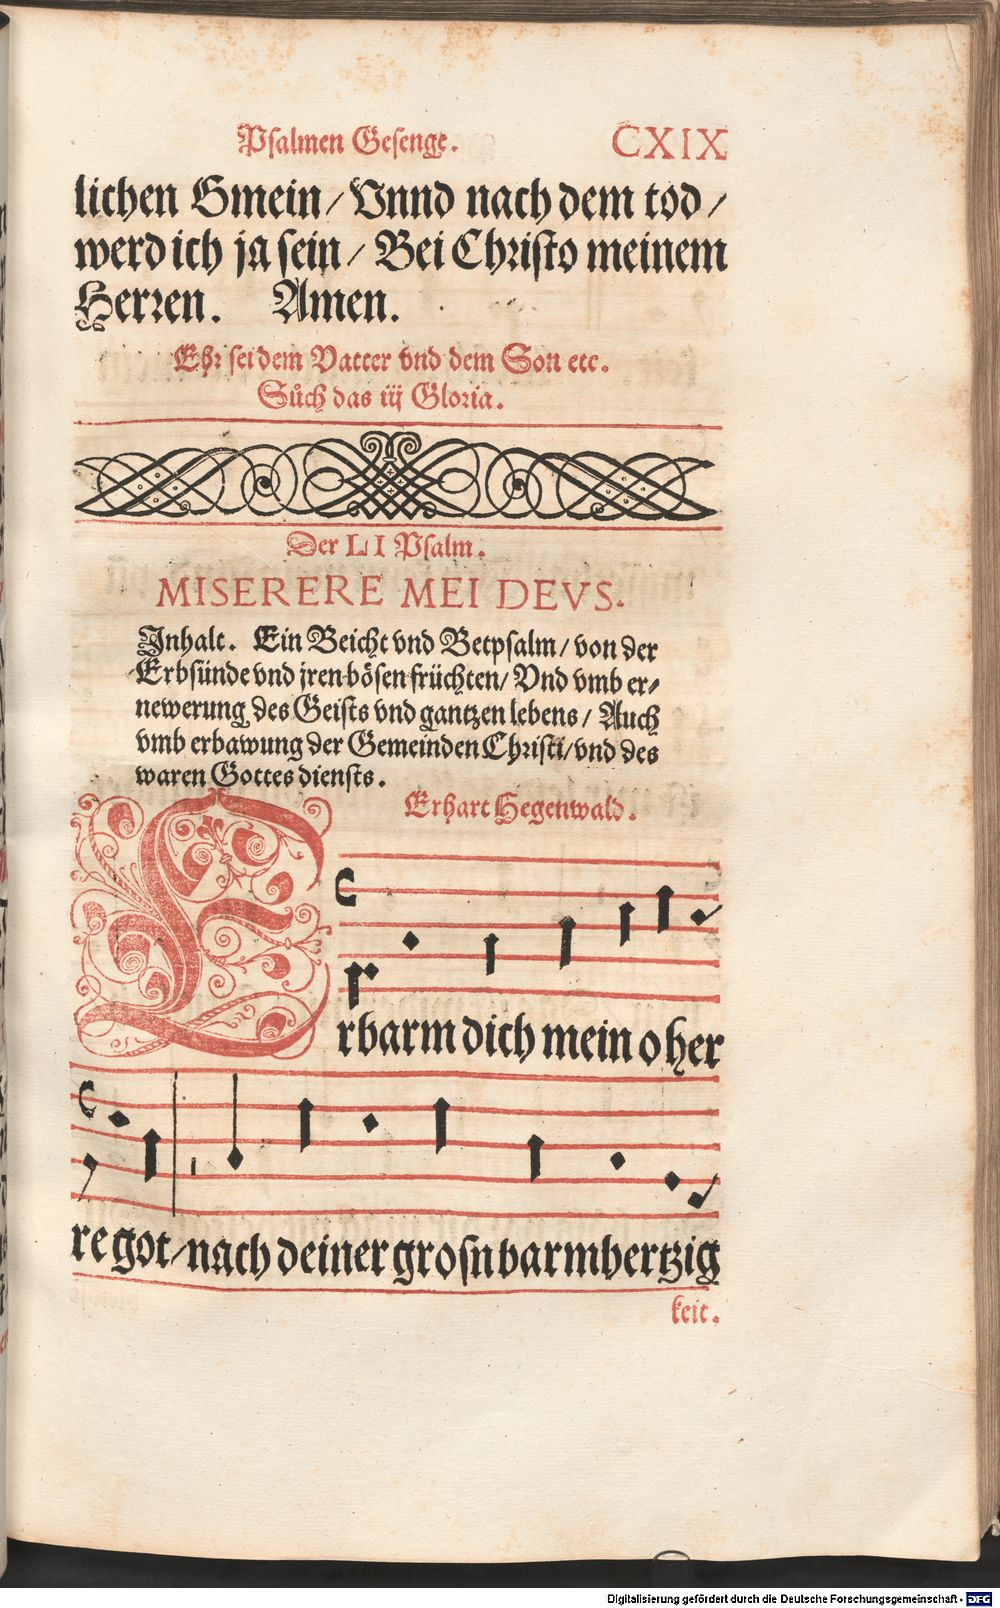 Psalmen Gesenge. CXIX
lichen Gmein / Vnnd nach dem tod /
werd ich ja sein / Bei Christo meinem
Herren. Amen.
Ehr sei dem Vatter vnd dem Son etc.
Sůch das iij Gloria.
Der LI Psalm.
MISERERE MEI DEVS.
Inhalt. Ein Beicht vnd Betpsalm / von der
Erbsünde vnd jren bösen früchten / Vnd vmb er⸗
newerung des Geists vnd gantzen lebens / Auch
vmb erbawung der Gemeinden Christi / vnd des
waren Gottes diensts.
Erhart Hegenwald.
Erbarm dich mein o her
re got / nach deiner grosn barmhertzig
keit.
Digitalisierung gefördert durch die Deutsche Forschungsgemeinschaft - DFG